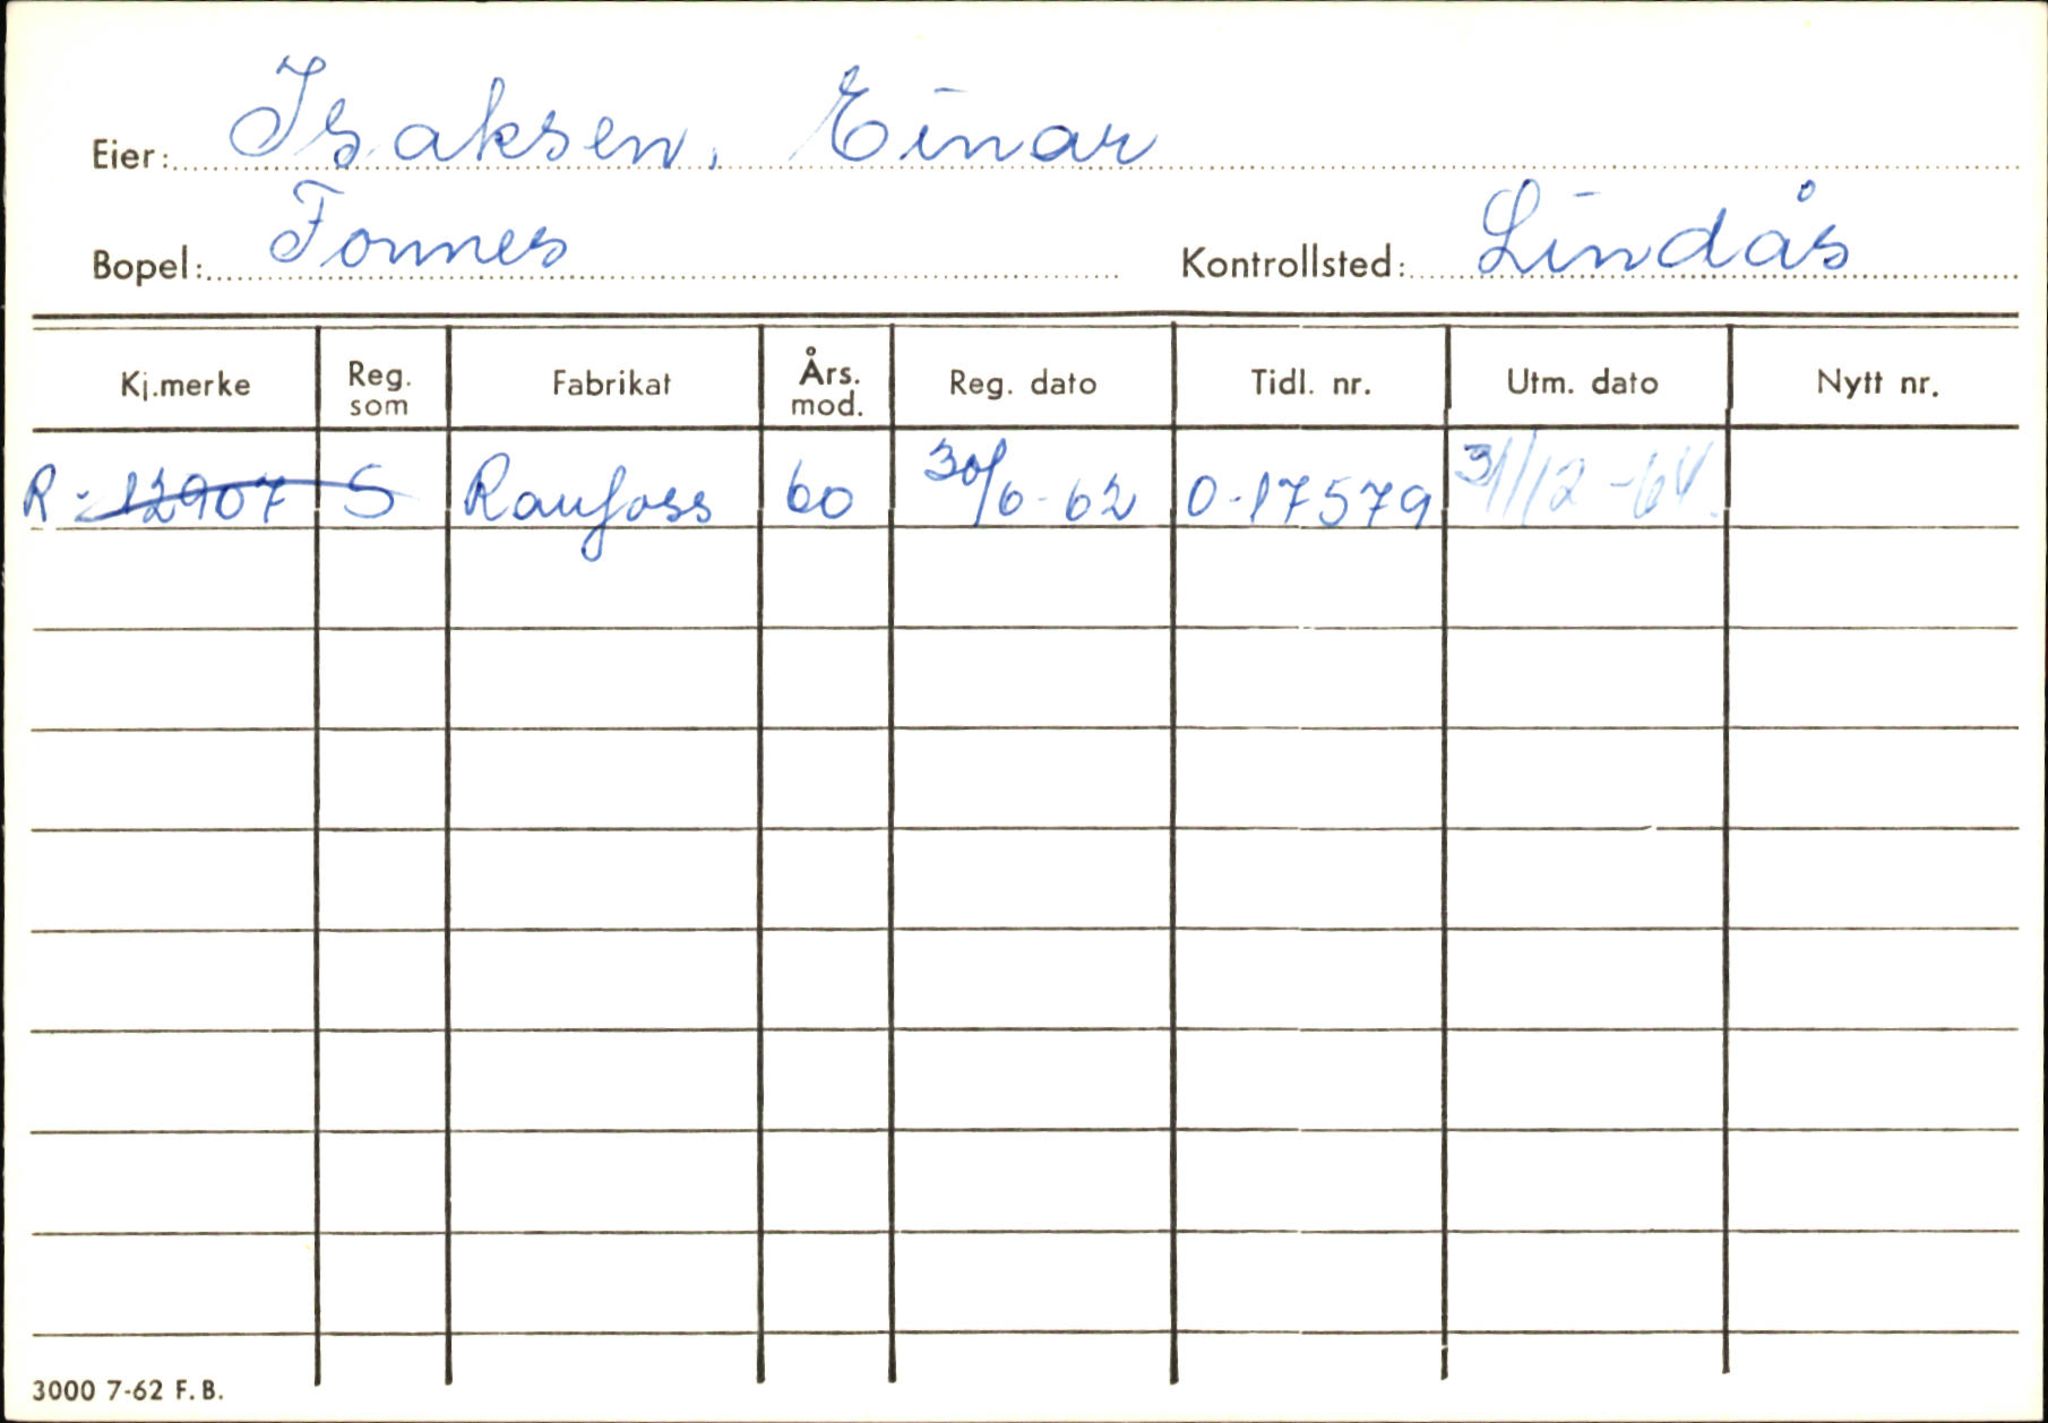 Eier: Isaksen, Einar
Bopel: Fonnes Kontrollsted: Lindås
Kj.merke Reg. som Fabrikat Års. mod. Reg. dato Tidl. nr. Utm. dato Nytt nr.
R-12907 S Raufoss 60 30/6-62 O-17579 31/12-64
3000 7-62 F.B.